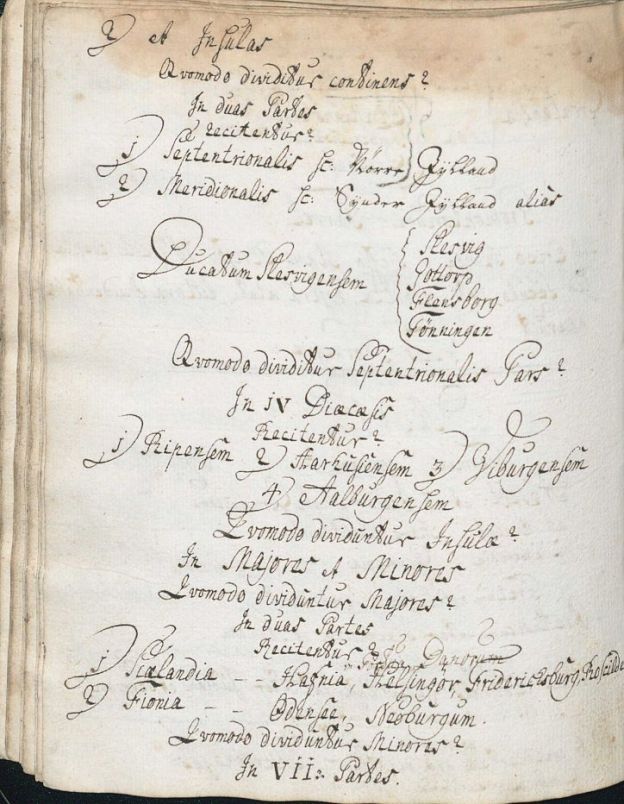 2) et Insulas
Qvomodo dividitur continens?
In duas Partes
recitentur?
1) Septentrionalis sc: Nörre Jÿlland
2) Meridionalis sc: Synder Jÿlland aliàs
Ducatum Slesvigensem
Slesvig
Gottorp
Flensborg
Tönningen
Qvomodo dividitur Septentrionalis Pars?
In IV Diæcæsis
Recitentur?
1) Ripensem 2) Aarhusiensem 3) Viburgensem
4) Aalburgensem
Qvomodo dividuntur Insulæ?
In Majores et Minores
Qvomodo dividuntur Majores?
In duas Partes
Recitentur? Danorum
1) Sælandia -- Hafnia, Helsingör, Friderichsburg, Roskilde
2) Fionia -- Odensee, Neoburgum.
Qvomodo dividuntur Minores?
In VII: Partes.